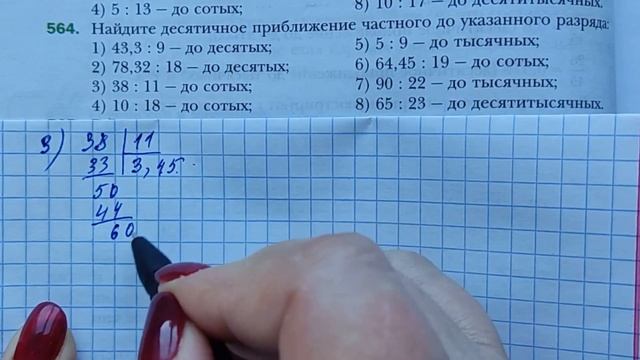 4) 5 : 13 – до сотых; 8) 10 : 17 – до десятитысячных.
564. Найдите десятичное приближение частного до указанного разряда:
1) 43,3 : 9 – до десятых; 5) 5 : 9 – до тысячных;
2) 78,32 : 18 – до десятых; 6) 64,45 : 19 – до сотых;
3) 38 : 11 – до сотых; 7) 90 : 22 – до тысячных;
4) 10 : 18 – до сотых; 8) 65 : 23 – до десятитысячных.
3) 38 11
33 3,45
50
44
60